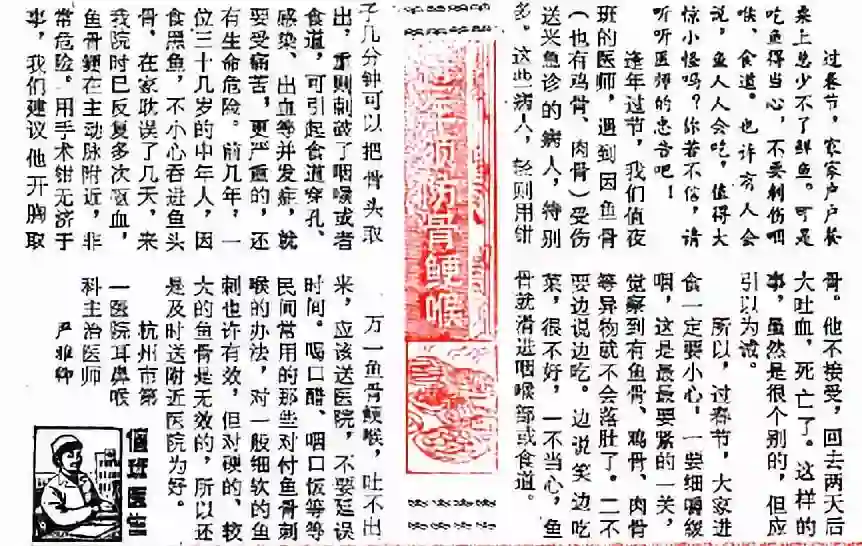 年预防骨鲠喉
过春节,家家户户餐
桌上总少不了鲜鱼。可是
吃鱼得当心,不要刺伤咽
喉、食道。也许有人会
说,鱼人人会吃,值得大
惊小怪吗?你若不信,请
听听医师的忠告吧!
逢年过节,我们值夜
班的医师,遇到因鱼骨
(也有鸡骨、肉骨)受伤
送来急诊的病人,特别
多。这些病人,轻则用钳
子几分钟可以把骨头取
出,重则刺破了咽喉或者
食道,可引起食道穿孔、
感染、出血等并发症,就
要受痛苦,更严重的,还
有生命危险。前几年,一
位三十几岁的中年人,因
食黑鱼,不小心吞进鱼头
骨,在家耽误了几天,来
我院时已反复多次呕血,
鱼骨鲠在主动脉附近,非
常危险。用手术钳无济于
事,我们建议他开胸取
骨。他不接受,回去两天后
大吐血,死亡了。这样的
事,虽然是很个别的,但应
引以为诫。
所以,过春节,大家进
食一定要小心,一要细嚼缓
咽,这是最最要紧的一关,
觉察到有鱼骨、鸡骨、肉骨
等异物就不会落肚了。二不
要边说边吃。边说笑边吃
菜,很不好,一不当心,鱼
骨就滑进咽喉部或食道。
万一鱼骨鲠喉,吐不出
来,应该送医院,不要延误
时间。喝口醋、咽口饭等等
民间常用的那些对付鱼骨刺
喉的办法,对一般细软的鱼
刺也许有效,但对硬的、较
大的鱼骨是无效的,所以还
是及时送附近医院为好。
杭州市第
一医院耳鼻喉
科主治医师
严
值班医生